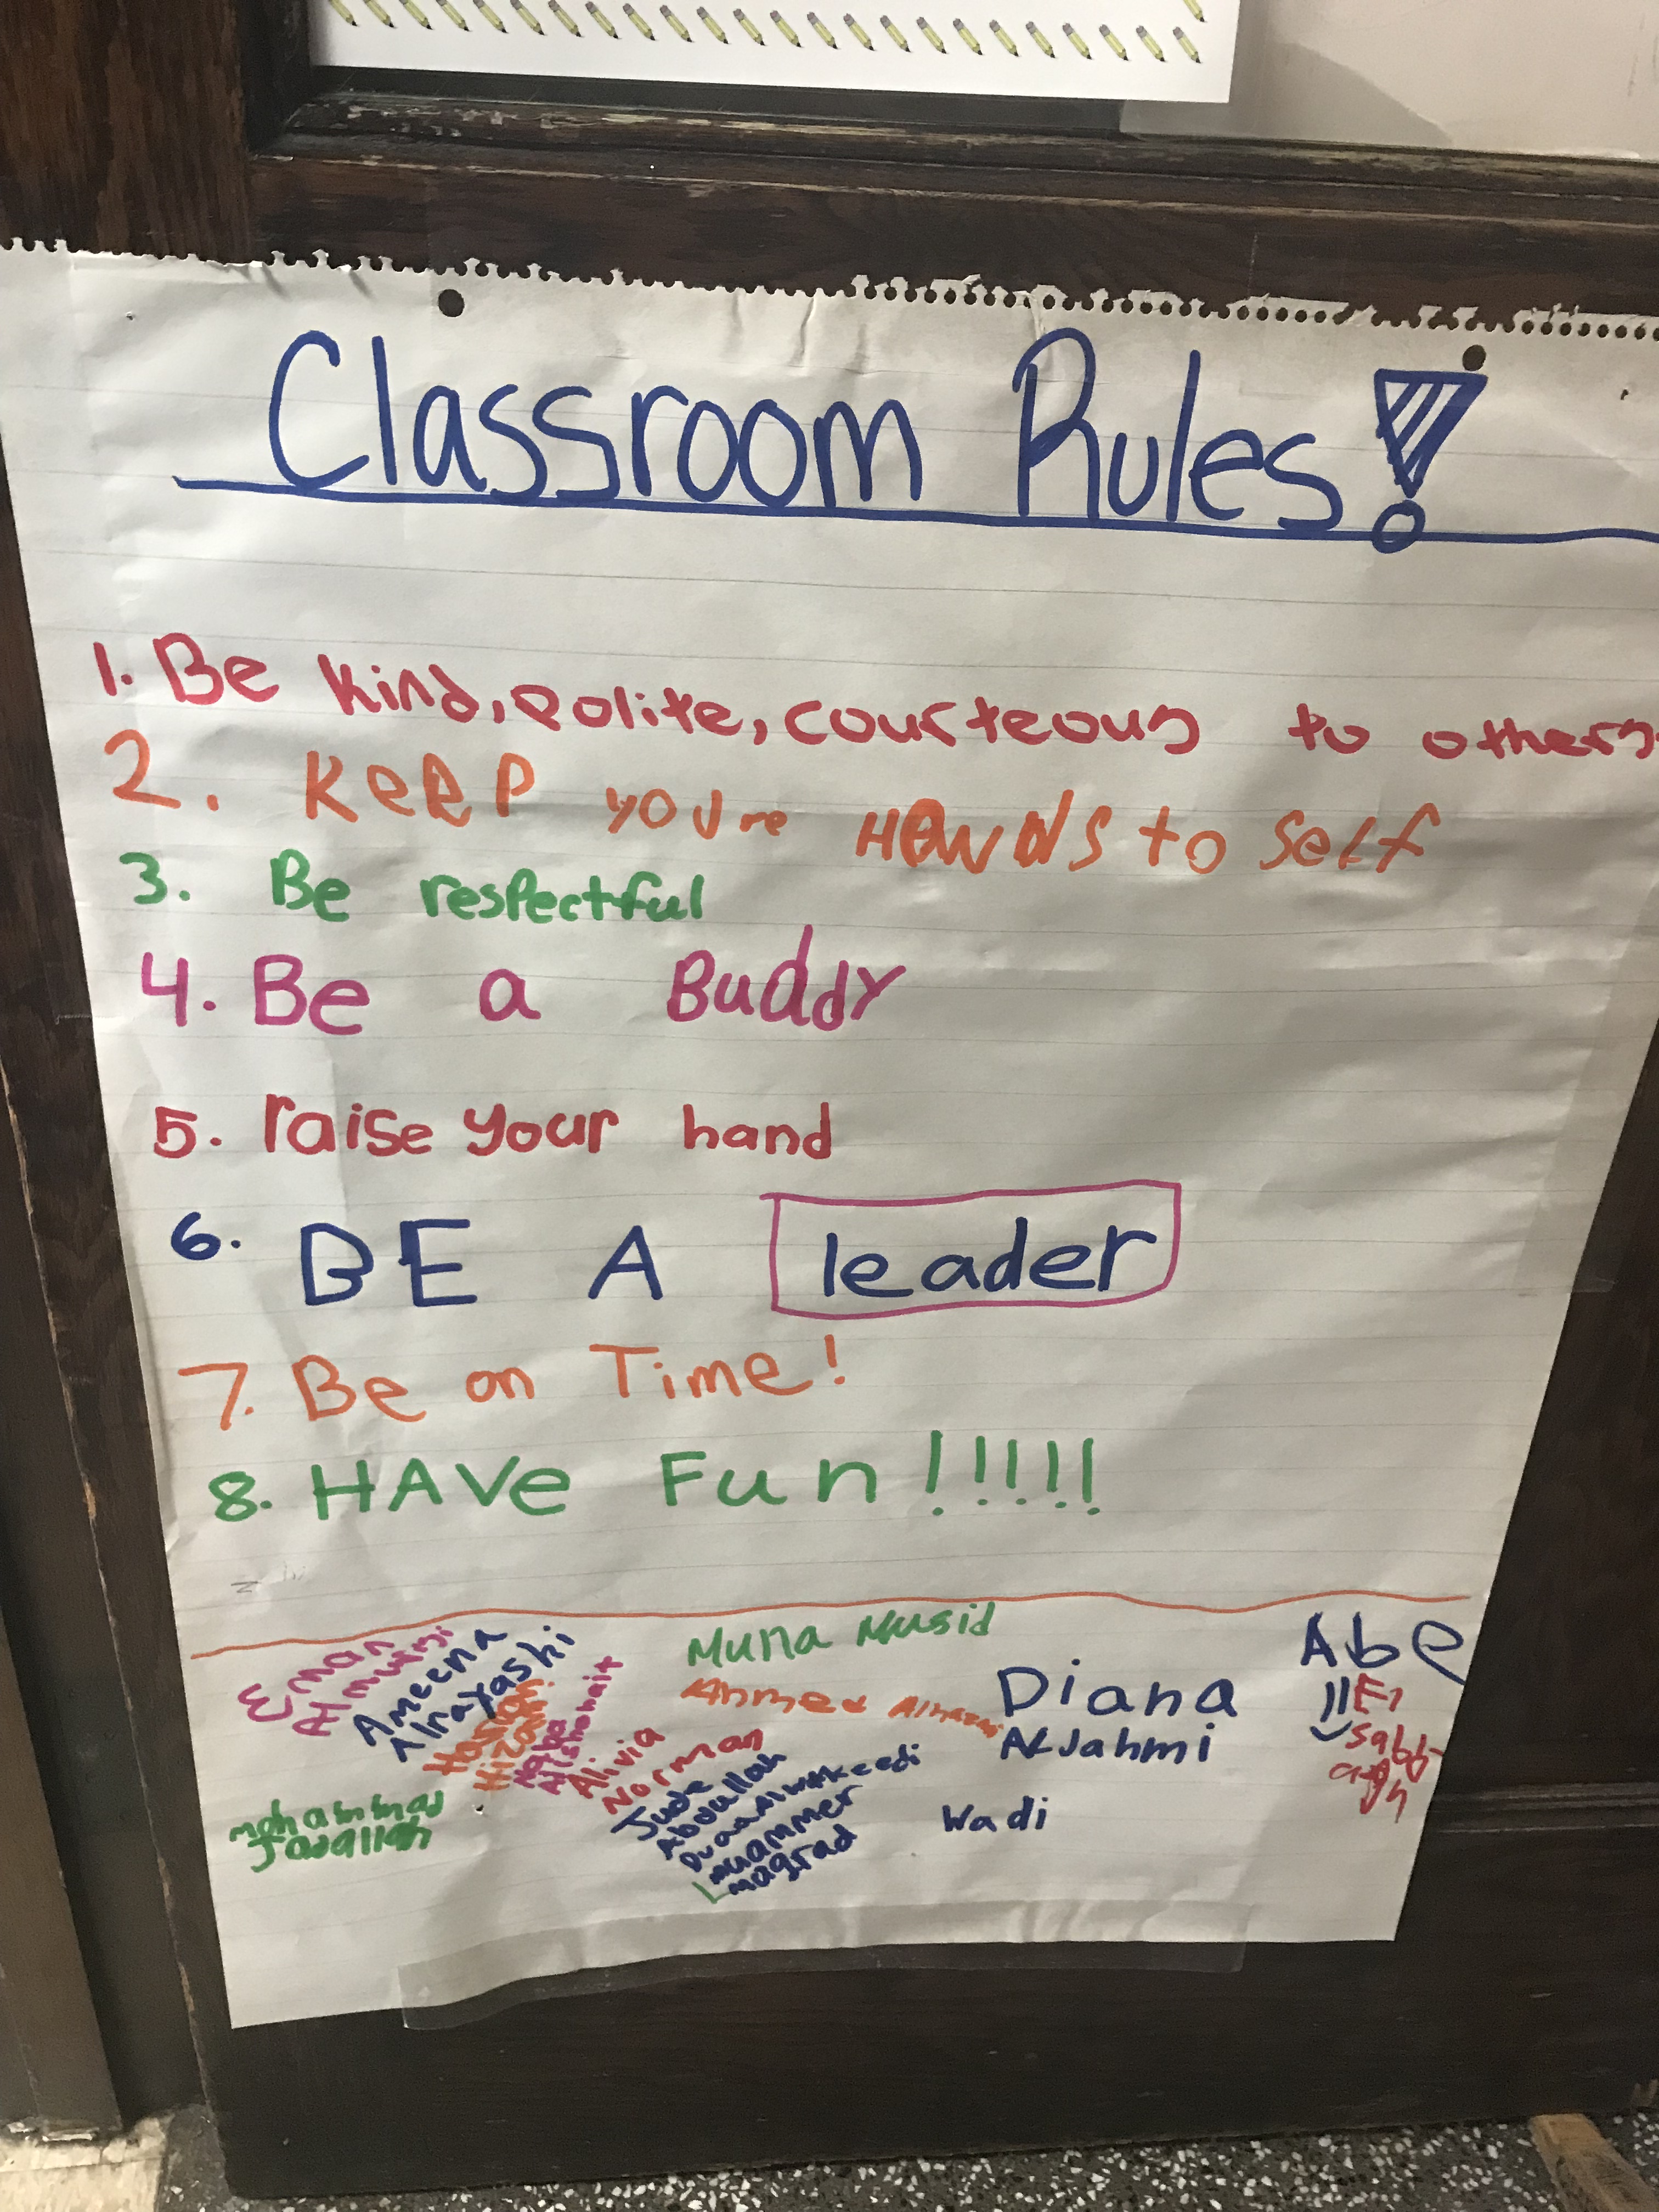 Classroom Rules!
1. Be kind, polite, courteous to others.
2. KeeP youre HANDS to self
3. Be respectful
4. Be a Buddy
5. raise your hand
6. BE A leader
7. Be on Time!
8. HAVe Fun!!!!!
Eman
Almutmi
Ameena
Alrayashi
Hassan
Hizam
Alshohait
Alivia
Norman
Muna Musid
Ahmed
Jude
Abdullah
Duaa Alwakeedi
muammer
magrad
Diana
ALJahmi
Wadi
Abe
mohammad
Jadallah